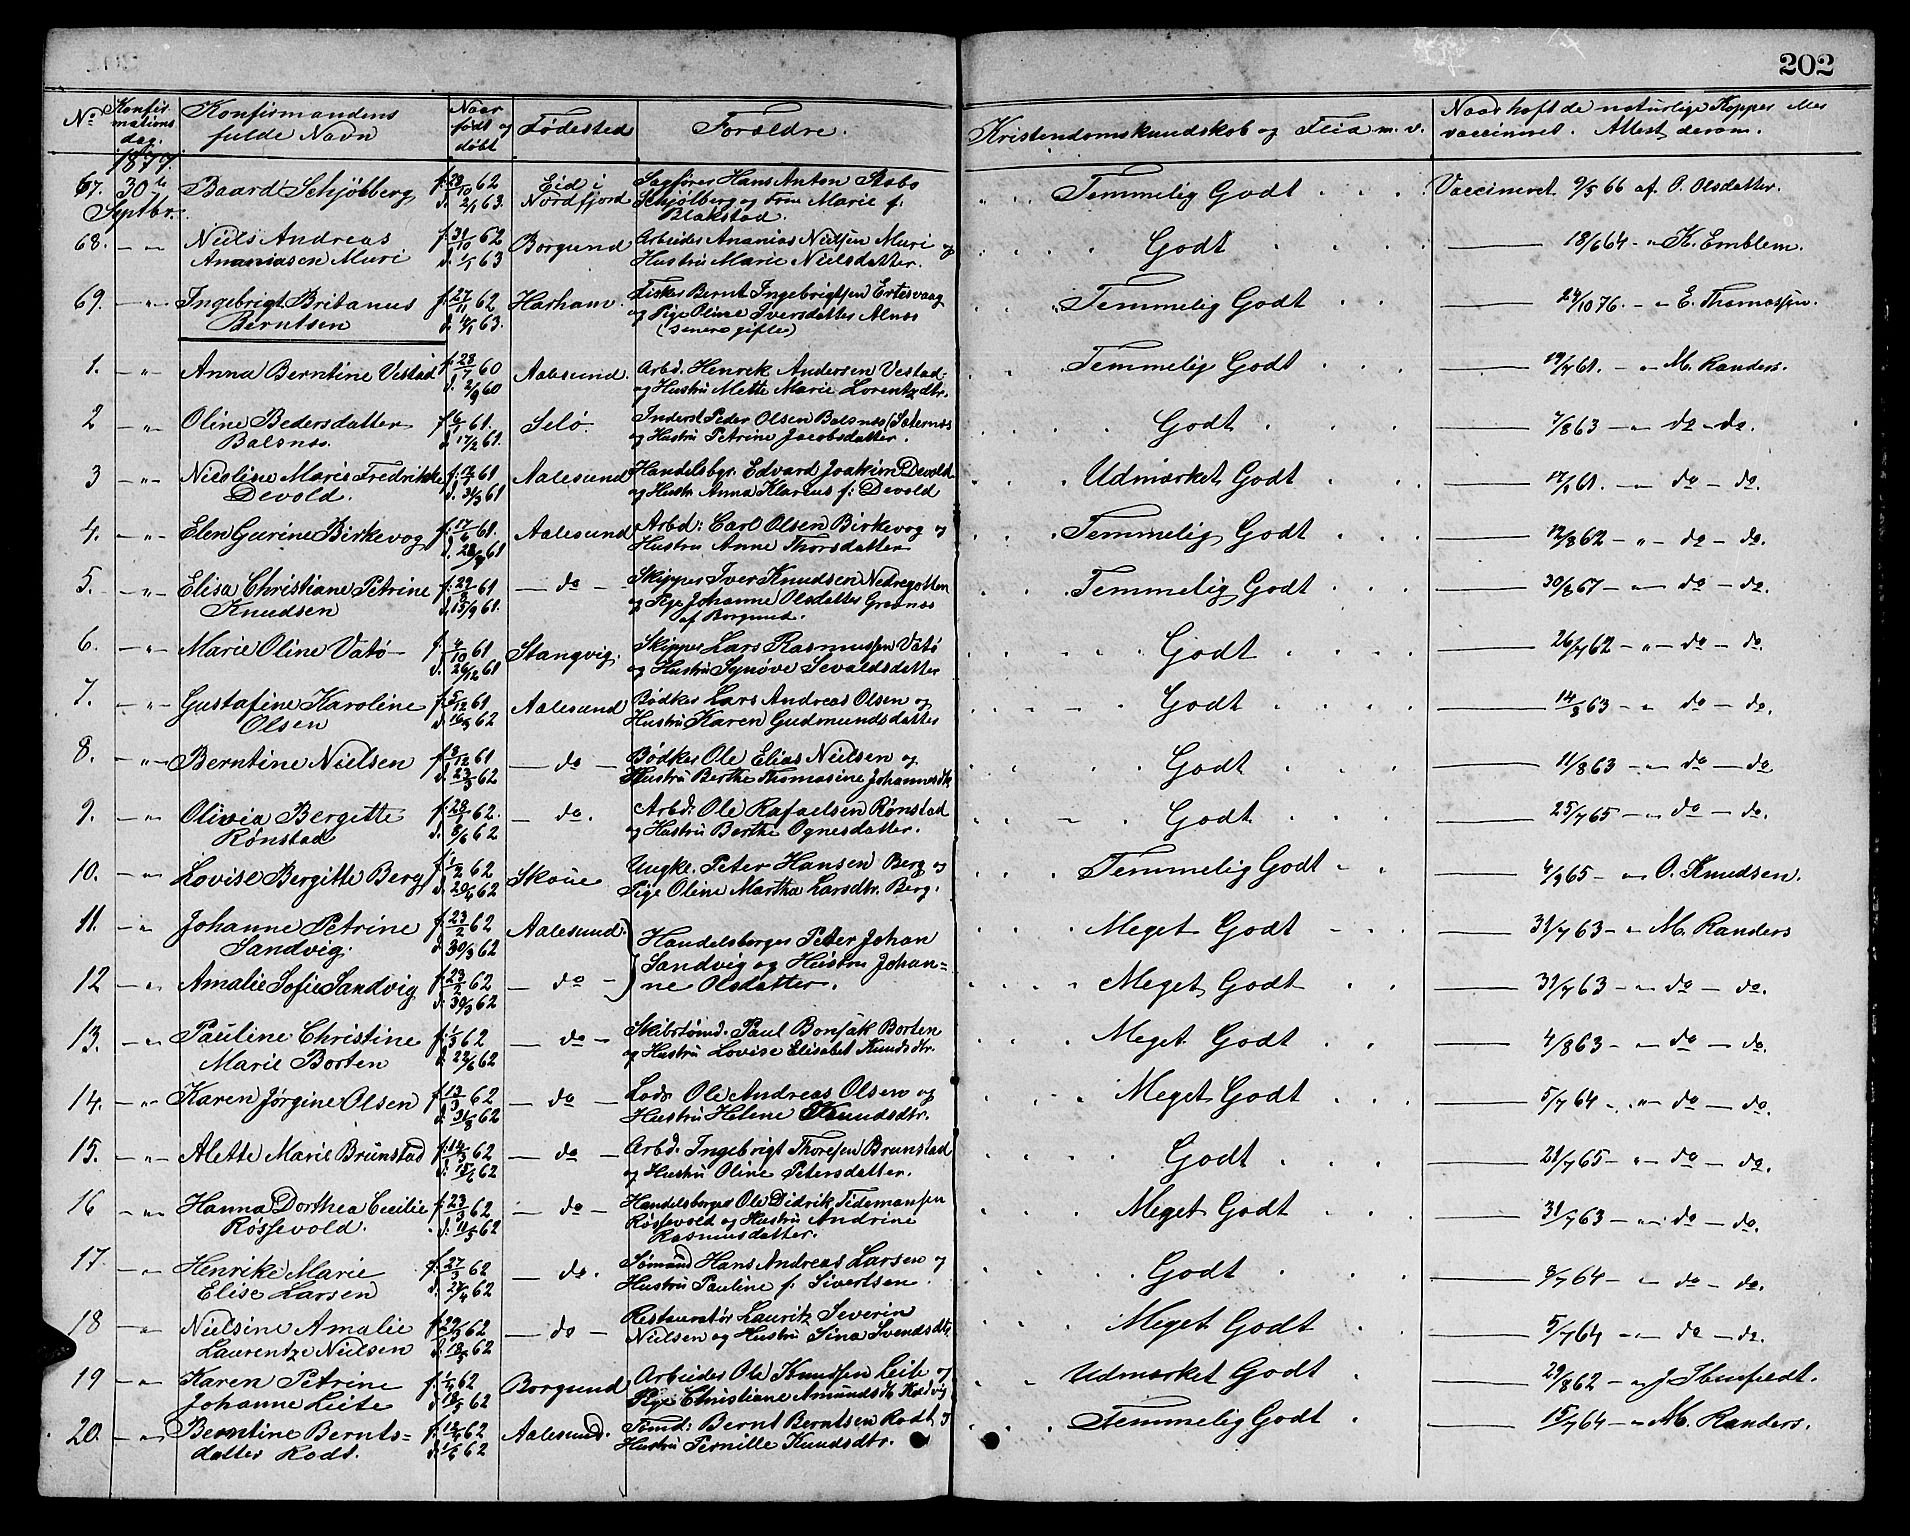 202
No Konfirmationsdag. Konfirmandens fulde Navn Naar født og døbt Fødested Forældre. Kristendomskundskab og Flid m. v. Naar haft de naturlige Kopper eller vaccineret. Attest derom.
1877
67. 30te Septbr. Baard Schjølberg f. 23/10 62 d. 2/1 63. Eid i Nordfjord Sagfører Hans Anton Stabo Schjølberg og Frue Marie f. Blakstad. Temmelig Godt Vaccineret 9/5 66 af O. Olsdatter.
68. — " — Niels Andreas Ananiasen Muri f. 31/10 62 d. 1/1 63 Borgund Arbeider Ananias Nielsen Muri og Hustru Marie Nielsdatter. Godt — 18/6 64 — " K. Emblem.
69. — " — Ingebrigt Britanus Berntsen f. 27/11 62 d. 4/1 63. Harham. Fisker Bernt Ingebrigtsen Ertesvaag og Pige Oline Iversdatter Alnæs (senere gifte) Temmelig Godt — 24/10 76. — " E. Thomassen.
1. — " — Anna Berntine Vestad f. 28/7 60 d. 2/9 60 Aalesund. Arbd. Henrik Andersen Vestad og Hustru Mette Marie Lorentzdtr. Temmelig Godt — 19/7 61. — " M. Randers.
2 — " — Oline Pedersdatter Balsnes. f. 6/1 61. d. 17/2 61. Selø. Inderst Peder Olsen Balsnes og Hustru Petrine Jacobsdatter. Godt — 7/8 63 — " do — do.
3 — " — Nicoline Marie Fredrikke Devold. f. 12/1 61 d. 31/3 61 Aalesund Handelsbgr. Edvard Joakim Devold og Hustr. Anna Klarius f: Devold Udmærket Godt — 17/7 61. — " do — do.
4. — " — Elen Gurine Birkevog f. 17/6 61. d. 28/7 61 Aalesund Arbd: Carl Olsen Birkevog og Hustru Anne Thorsdatter Temmelig Godt — 12/8 62 — " — do — do.
5. — " — Elisa Christiane Petrine Knudsen f. 29/8 61 d. 15/9 61. — do — Skipper Iver Knudsen Nedregotten og Pige Johanne Olsdatter Grønnes af Borgund. Temmelig Godt — 30/8 67 — " do — do.
6. — " — Marie Oline Vatø f. 4/10 61 d. 26/12 61 Stangvig. Skipper Lars Rasmussen Vatø og Hustru Synøve Sevaldsdatter Godt — 26/7 62 — " — do — do.
7. — " — Gustafine Karoline Olsen f. 5/12 61 d. 16/3 62 Aalesund Bødker Lars Andreas Olsen og Hustru Karen Gudmundsdatter Godt — 14/8 63 — " do — do.
8. — " — Berntine Nielsen f. 3/12 61 d. 23/3 62 — do — Bødker Ole Elias Nielsen og Hustru Berthe Thomasine Johannesdtr. Godt — 11/8 63 — " do — do
9. — " — Olivia Bergitte Rønstad f. 28/1 62. d. 8/6 62 — do. Arbd. Ole Rafaelsen Rønstad og Hustru Berthe Ognesdatter. Godt — 25/7 65 — " do — do.
10. — " — Lovise Bergitte Berg f. 1/2 62 d. 20/4 62 Skoue Ungke. Peter Hansen Berg og Pige Oline Martha Larsdtr. Berg. Temmelig Godt — 4/9 65 — " O. Knudsen.
11. — " — Johanne Petrine Sandvig. f. 23/2 62 d. 30/3 62 Aalesund. Handelsborger Peter Johan Meget Godt — 31/7 63 — " M. Randers
12 — " — Amalie Sofie Sandvig f. 23/2 62 d. 30/3 62 — do — Sandvig og Hustru Johanne Olsdatter. Meget Godt — 31/7 63 — " do — do.
13. — " — Pauline Christine Marie Borten f. 1/3 62 d. 22/6 62 — do — Skibstømd. Paul Bonsak Borten og Hustru Lovise Elisabet Knudsdtr. Meget Godt — 4/8 63 — " do — do.
14. — " — Karen Jørgine Olsen f. 13/3 62 d. 31/8 62 — do — Lods Ole Andreas Olsen og Hustru Helene Knudsdtr. Meget Godt — 5/7 64 — " do — do.
15. — " — Alette Marie Brunstad f. 14/3 62 d. 15/6 62 — do — Arbd. Ingebrigt Thoresen Brunstad og Hustru Oline Petersdatter. Godt — 21/7 65 — " do — do.
16 — " — Hanna Dorthea Cecilie Røssevold. f. 23/3 62 d. 11/5 62 — do — Handelsborger Ole Didrik Tidemansen Røssevold og Hustru Andrine Rasmusdatter. Meget Godt — 31/7 63 — " do — do.
17. — " — Henrike Marie Elise Larsen f. 27/3 62 d. 21/4 62 — do. Sømand Hans Andreas Larsen og Hustru Pauline f. Sivertsen. Godt — 8/7 64 — " do — do.
18 — " — Nielsine Amalie Laurentze Nielsen f. 29/3 62 d. 18/5 62 — do — Restauratør Lauritz Severin Nielsen og Hustru Sina Svendsdtr. Meget Godt — 5/7 64 — " do — do.
19 — " — Karen Petrine Johanne Leite f. 1/4 62 d. 18/5 62 Borgund Arbeider Ole Knudsen Leite og Pige Christiane Amundsdtr. Udmærket Godt — 29/8 62 — "
20. — " — Berntine Berntsdatter Rodt. f. 12/4 62 d. 1/6 62 Aalesund. Tømd: Bernt Berntsen Rodt og Hustru Pernille Knudsdtr. Temmelig Godt — 15/7 64 — " M. Randers.